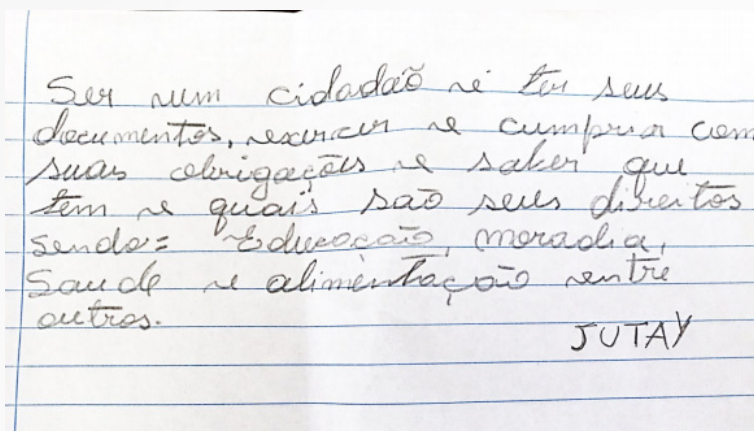 Ser um cidadão é ter seus
documentos, exercer e cumprir com
suas obrigações e saber que
tem e quais são seus direitos
sendo: Educação, moradia,
Saude e alimentação entre
outros.
JUTAY